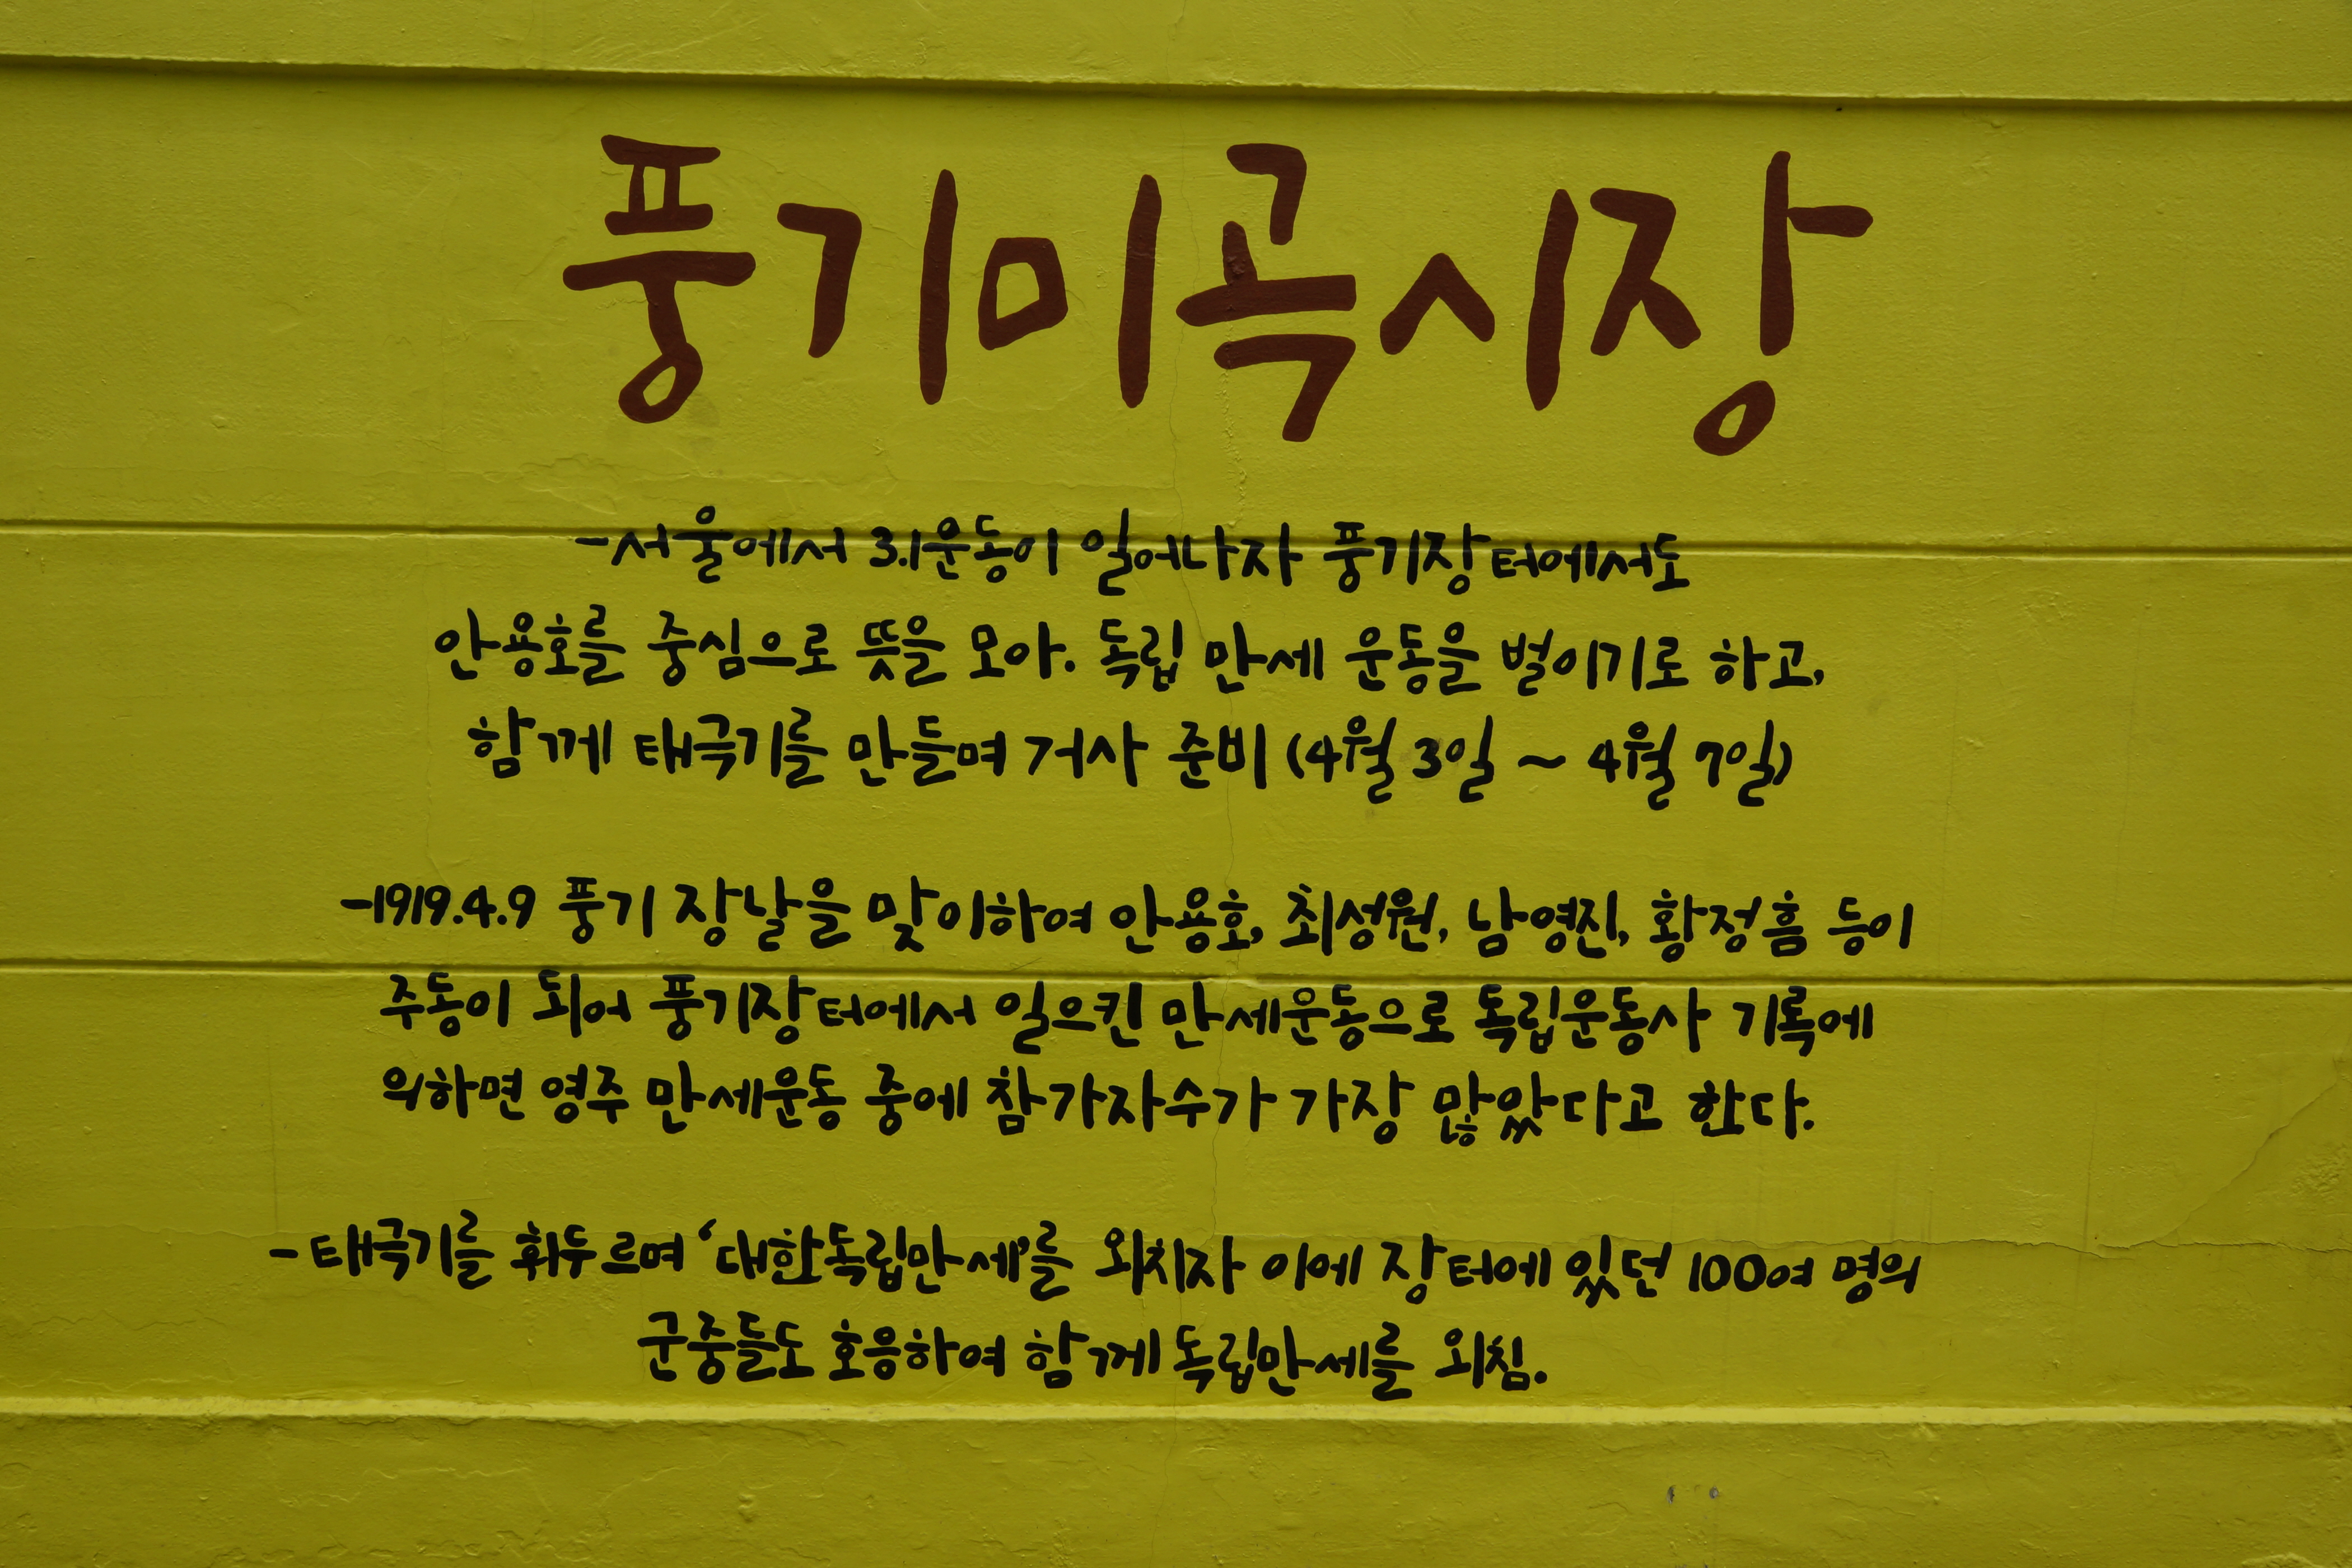 풍기미곡시장
-서울에서 3.1운동이 일어나자 풍기장터에서도
안용호를 중심으로 뜻을 모아. 독립 만세 운동을 벌이기로 하고,
함께 태극기를 만들며 거사 준비 (4월 3일 ~ 4월 7일)
-1919.4.9 풍기 장날을 맞이하여 안용호, 최성원, 남영진, 황정흠 등이
주동이 되어 풍기장터에서 일으킨 만세운동으로 독립운동사 기록에
의하면 영주 만세운동 중에 참가자수가 가장 많았다고 한다.
- 태극기를 휘두르며 '대한독립만세'를 외치자 이에 장터에 있던 100여 명의
군중들도 호응하여 함께 독립만세를 외침.